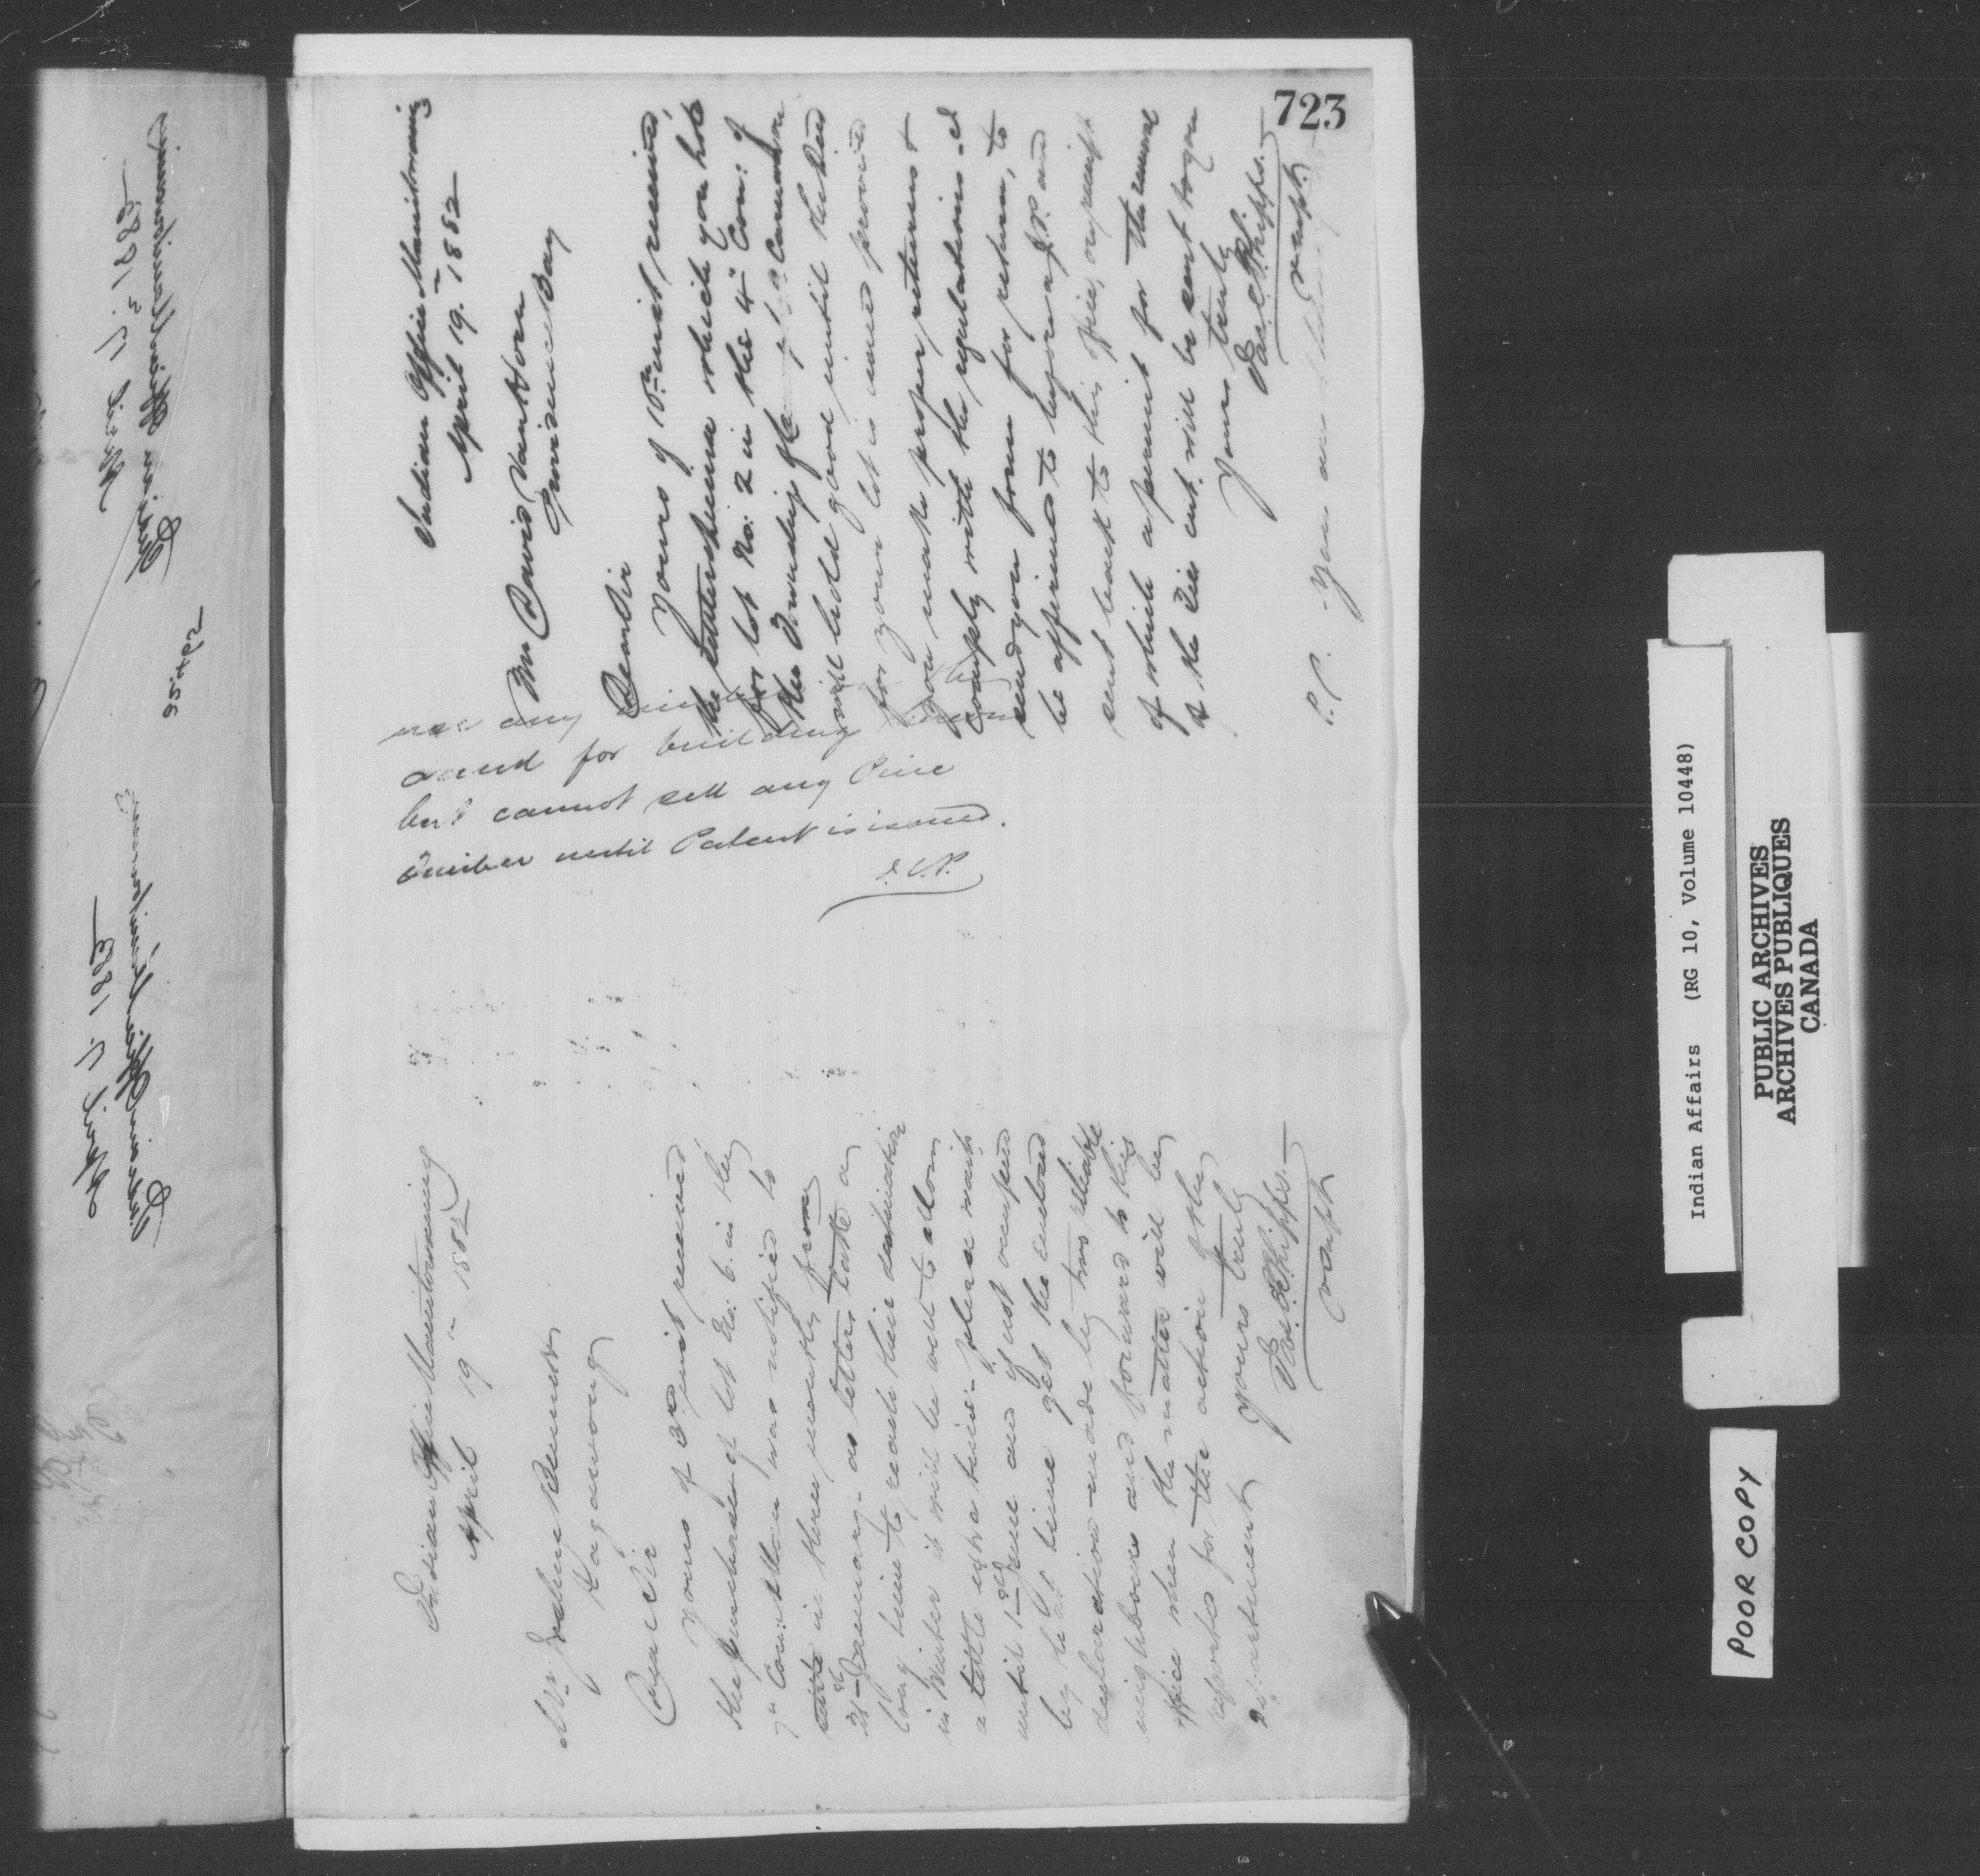 723
Indian Office Manitowaning
April 19. 1882
Mr David Van Horn
Providence Bay
Dear Sir
Yours of 10th inst. received,
the
which you hold
for lot No: 2 in the 4th Con: of
the Township of Carnarvon
will hold good until
for your lot is issued provided
you make proper returns &
comply with the regulations - I
send you form for return, to
be affirmed to before a J.P. and
sent back to this office, on receipt
of which a permit for the removal
of the Ties cut, will be sent to you
Yours truly
Jas. C. Phipps.
V.I. Supt.
P.S. - You can
use any
and for building
but cannot sell any Pine
Timber until Patent is issued.
J.C.P.
Indian Office Manitowaning
April 19th 1882
Mr John Bennett
Kagawong
Dear Sir
Yours of 3rd inst received
the purchaser of lot No: 6. in the
7th Con: then was notified to
in three months from
21st January - as letters take a
long time to reach their destination
in Winter it will be well to allow
a little extra time - please wait
until 1st June and if not occupied
by that time get the enclosed
declaration made by two reliable
neighbours and forward to this
office when the matter will be
reported for the action of the
Department
Yours truly
Jas. C. Phipps.
V.I. Supt
Indian Affairs (RG 10, Volume 10448)
PUBLIC ARCHIVES
ARCHIVES PUBLIQUES
CANADA
POOR COPY